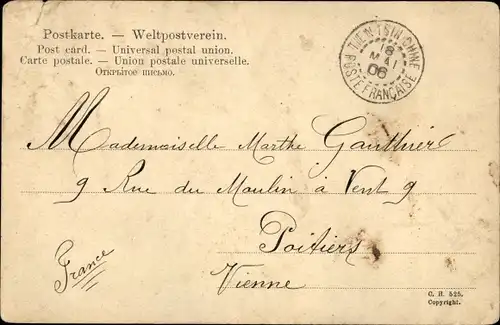 Postkarte. — Weltpostverein.
Post card. — Universal postal union.
Carte postale. — Union postale universelle.
Открытое письмо.
TIEN-TSIN CHINE
18
MAI
06
POSTE FRANÇAISE
Mademoiselle Marthe Gauthier
9 Rue du Moulin à Vent 9
Poitiers
France
Vienne
C. H. 525.
Copyright.